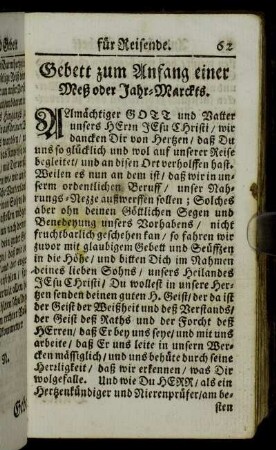 für Reisende. 62
Gebett zum Anfang einer
Meß oder Jahr-Marckts.
Allmächtiger GOTT und Vatter
unsers HErrn JEsu CHristi / wir
dancken Dir von Hertzen / daß Du
uns so glücklich und wol auf unserer Reise
begleitet / und an disen Ort verholffen hast.
Weilen es nun an dem ist / daß wir in un-
serm ordentlichen Beruff / unser Nah-
rungs-Netze außwerffen sollen ; Solches
aber ohn deinen Göttlichen Segen und
Benedeyung unsers Vorhabens / nicht
fruchtbarlich geschehen kan / so fahren wir
zuvor mit glaubigem Gebett und Seüfften
in die Höhe / und bitten Dich im Nahmen
deines lieben Sohns / unsers Heilandes
JEsu CHristi / Du wollest in unsere Her-
tzen senden deinen guten H. Geist / der da ist
der Geist der Weißheit und deß Verstands /
der Geist deß Raths und der Forcht deß
HErren / daß Er bey uns seye / und mit uns
arbeite / daß Er uns leite in unsern Wer-
cken mässiglich / und uns behüte durch seine
Herzligkeit / daß wir erkennen / was Dir
wolgefalle. Und wie Du HERR / als ein
Hertzenkündiger und Nierenprüfer / am be-
sten